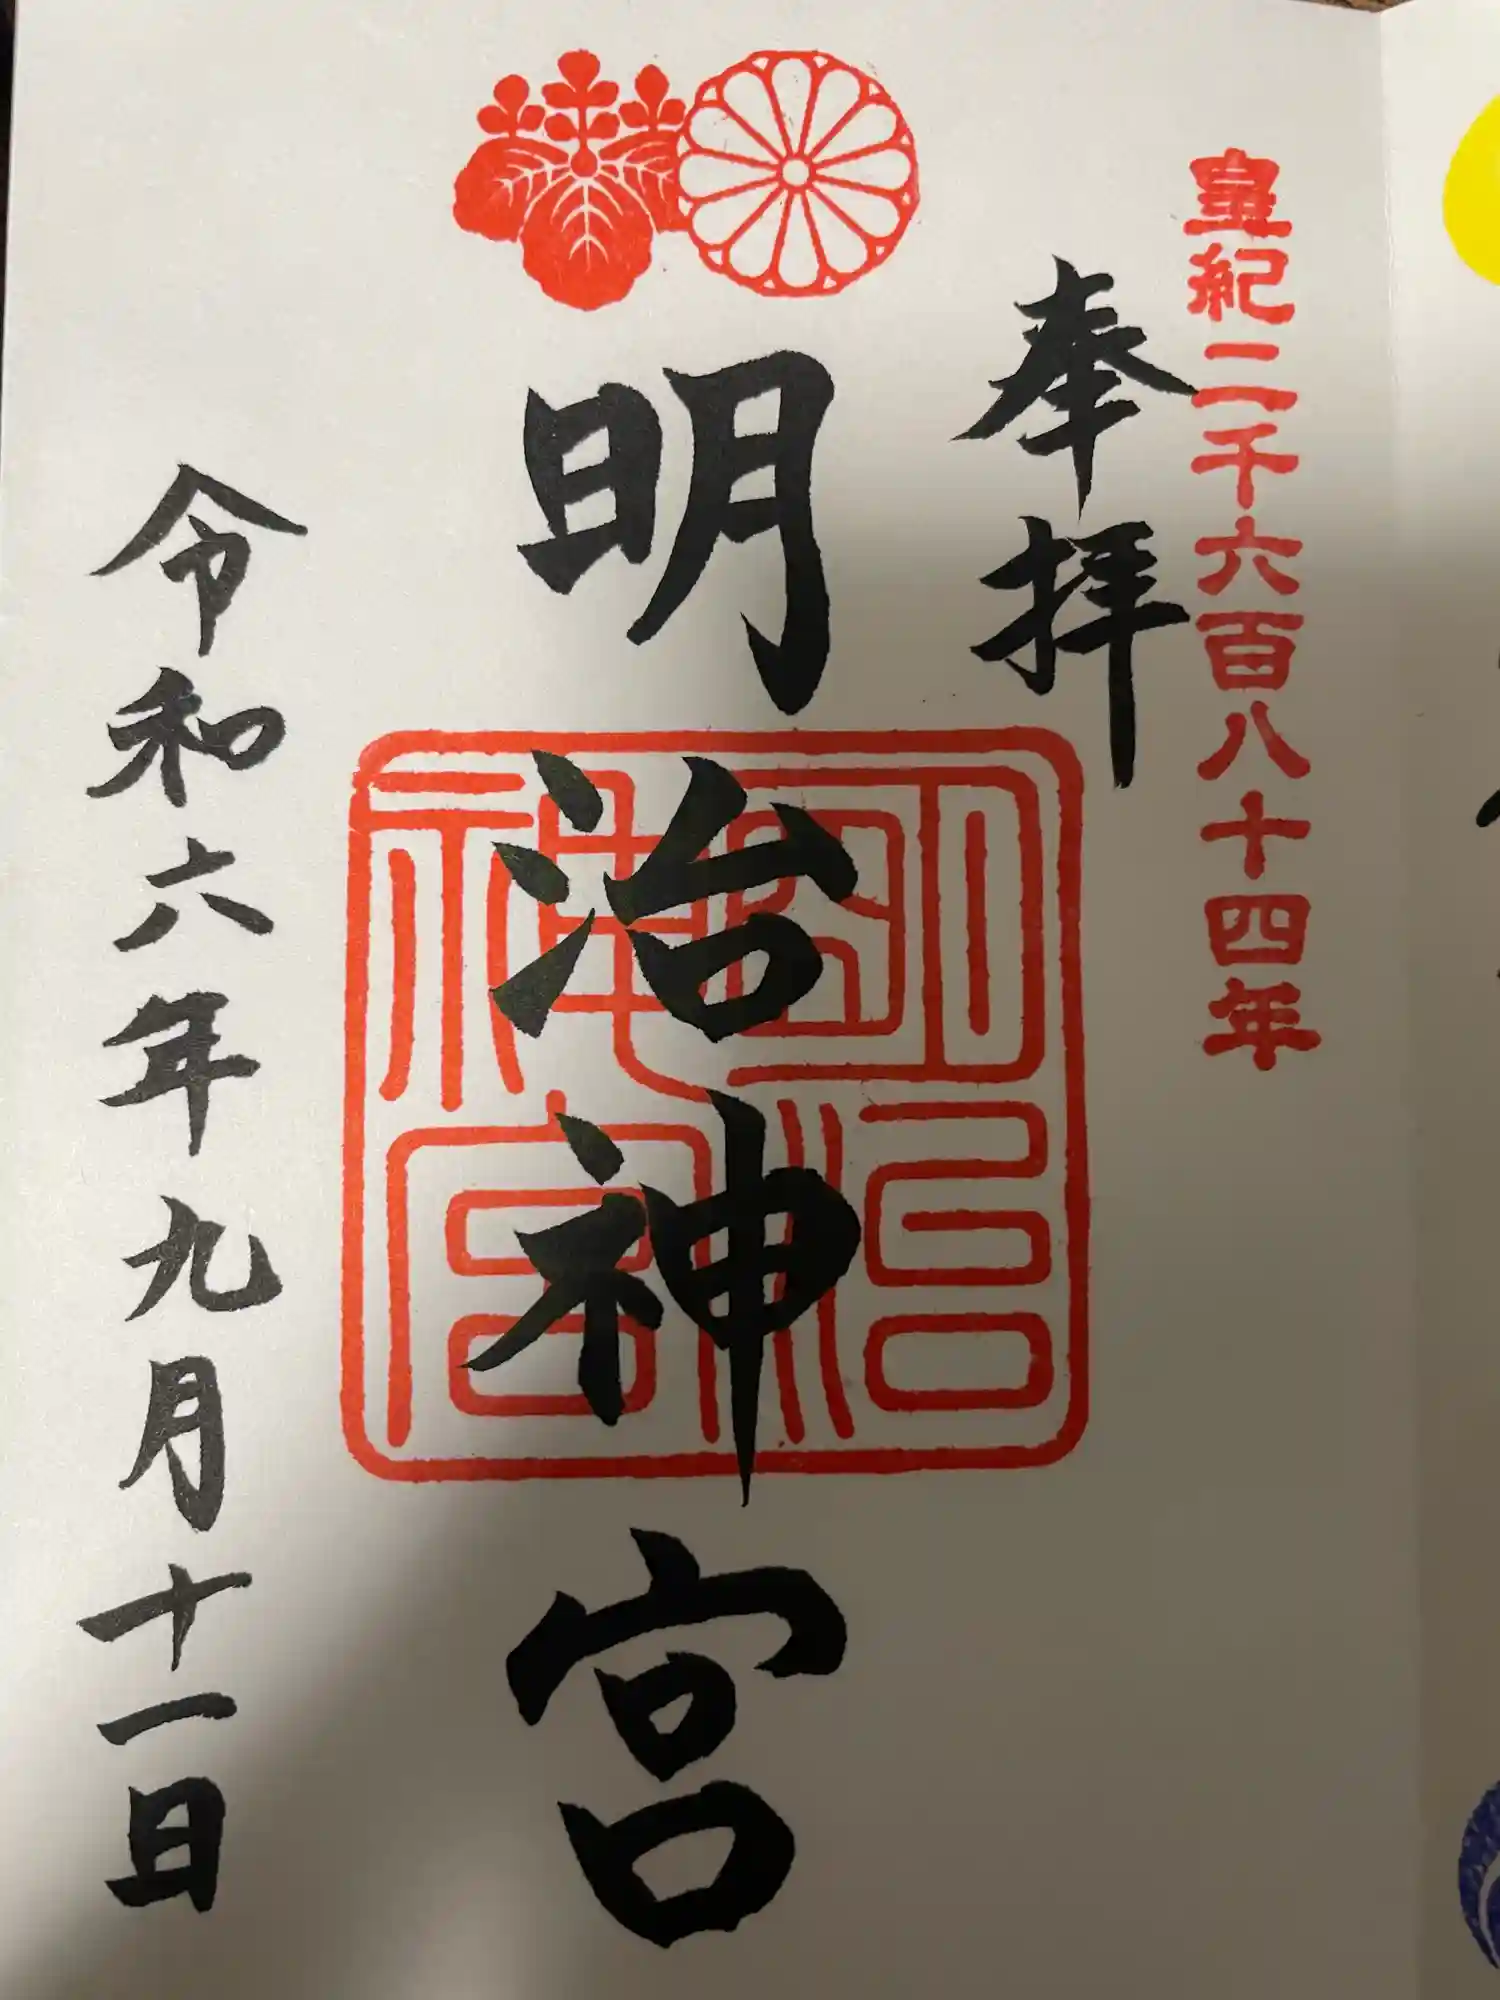 皇紀二千六百八十四年
奉拝
明治神宮
明治神宮
令和六年九月十一日